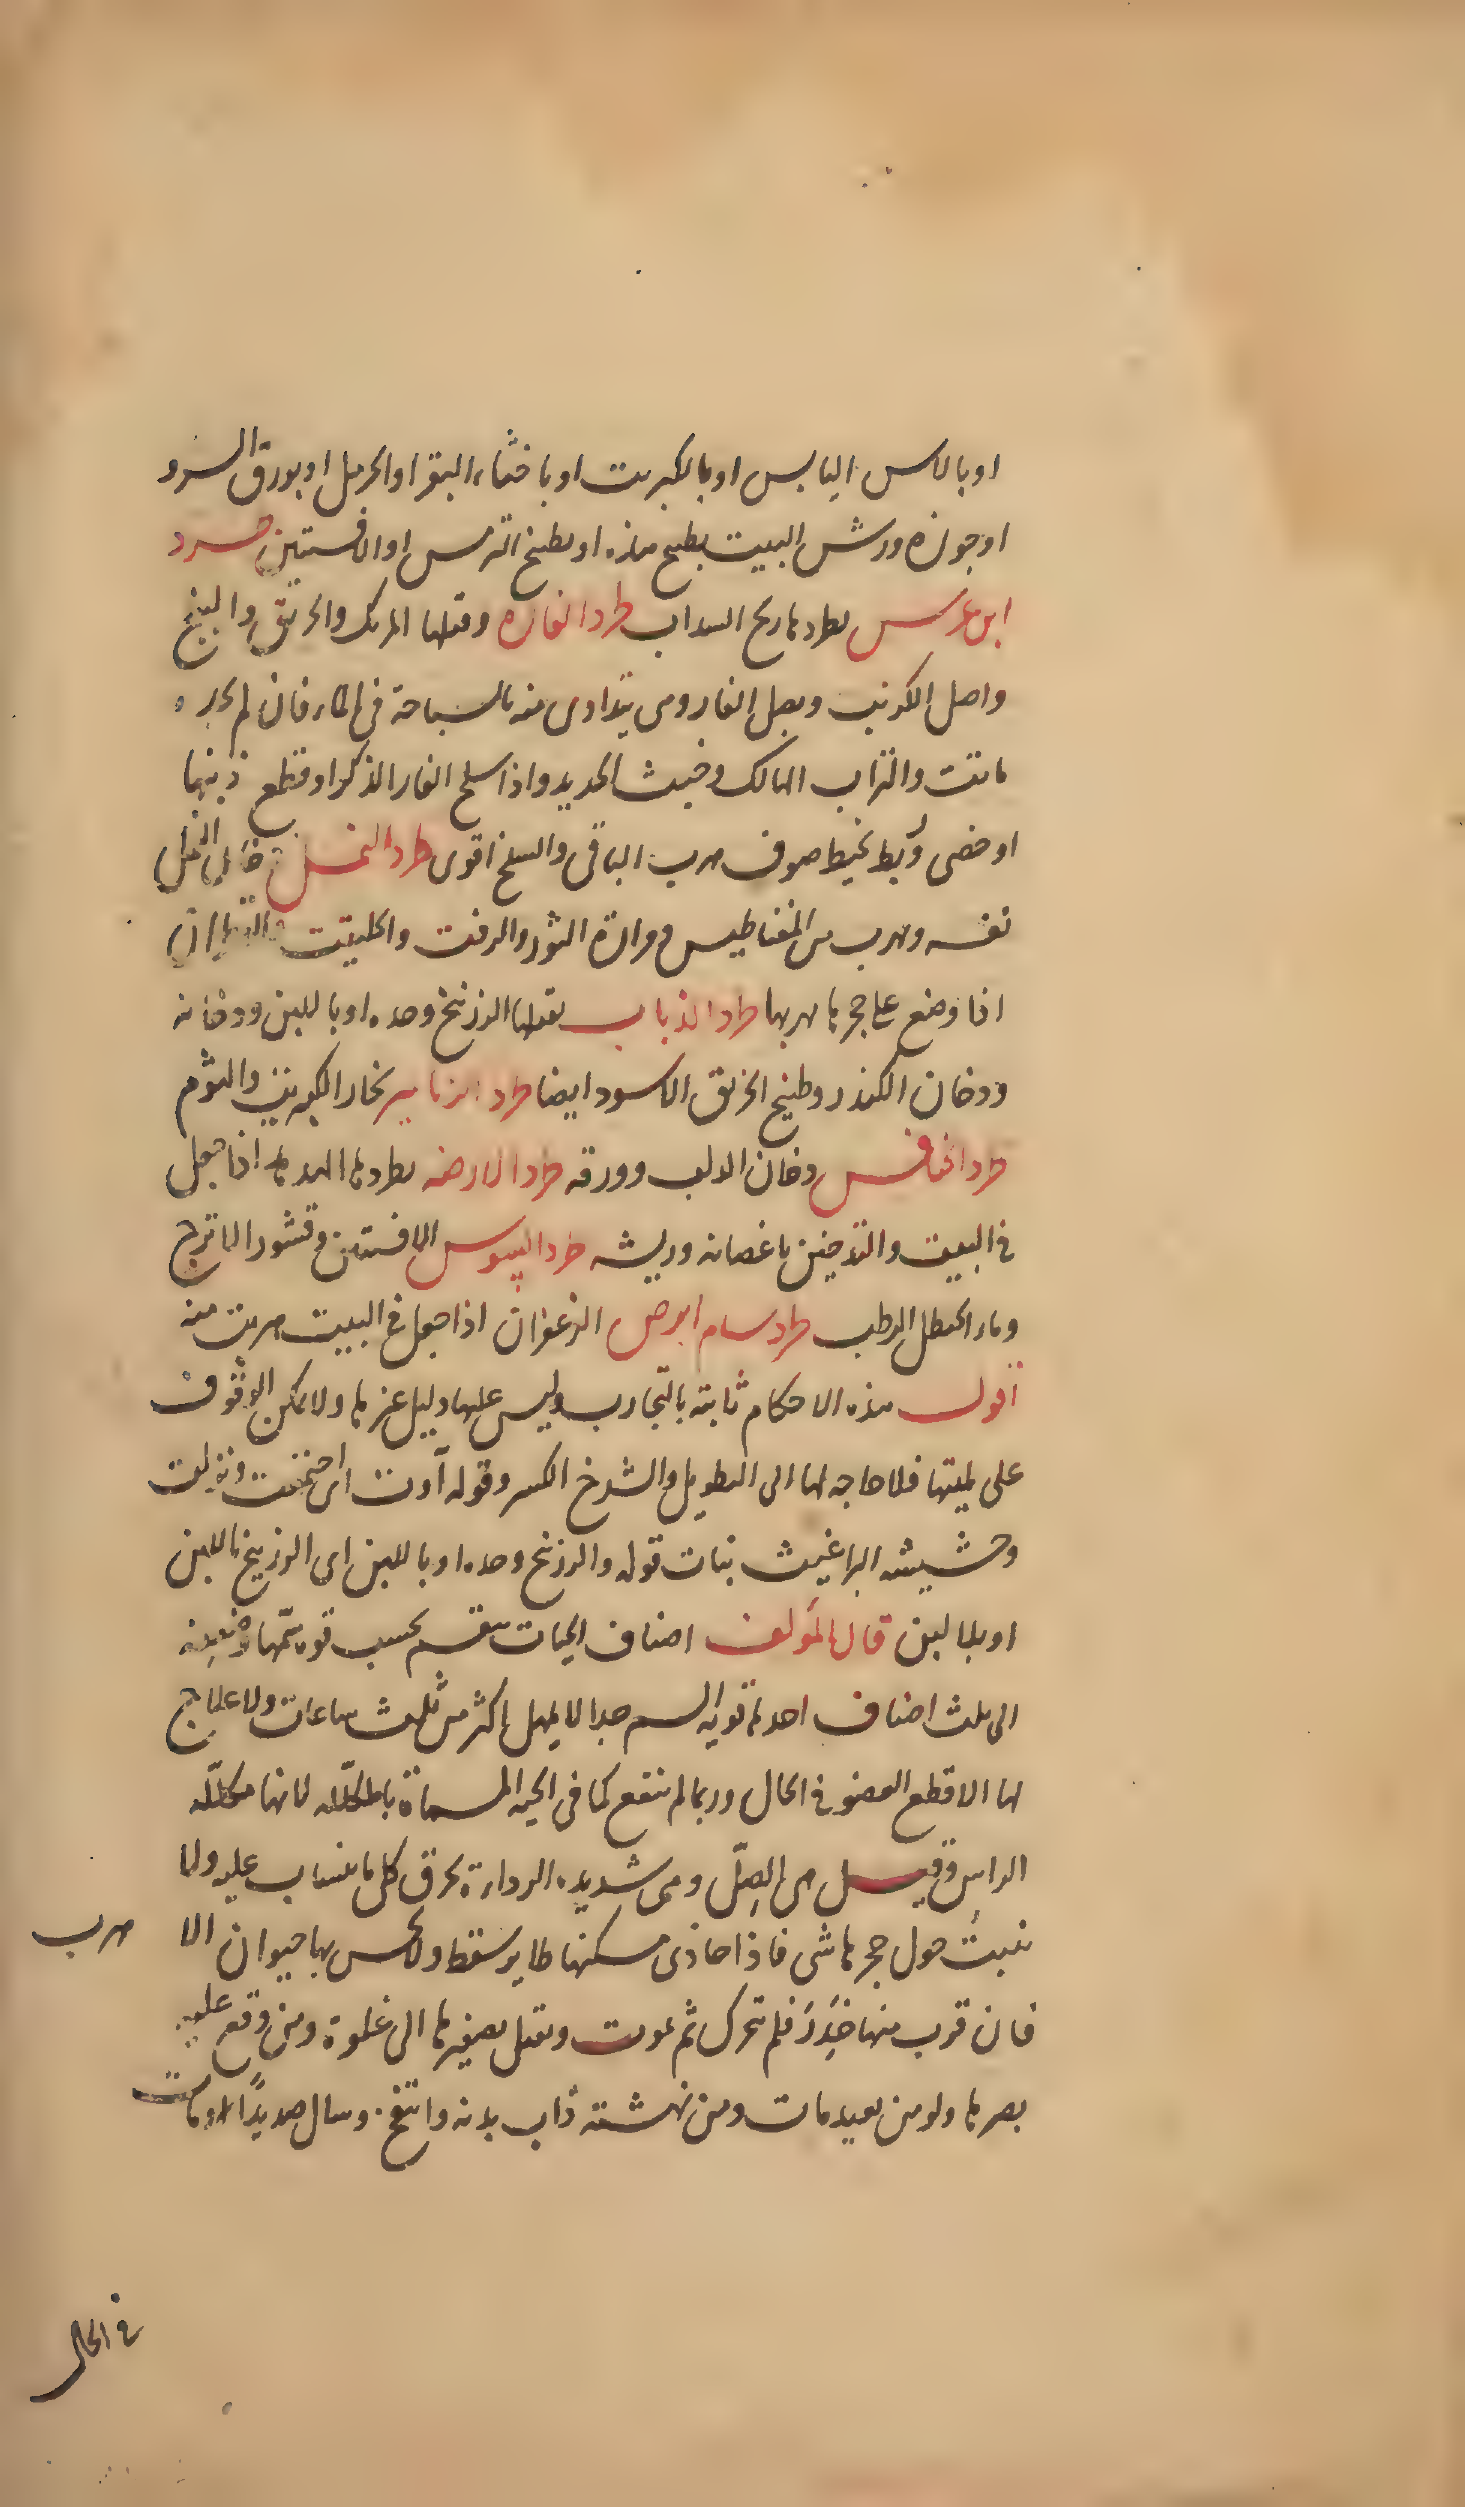 او بالاس اليابس او بالكبريت او باخثاء البقر او الحرمل او بورق السرو
او جوزه ورش البيت بطيخ هذه او بطيخ الترمس او الافسنتين طرد
ابن عرس يطردها ريح السداب طرد الفاره وقتلها المرتك والخربق والبنج
واصل الكرنب وبصل الفار وهي تتداوى منه بالسباحة في الماء فان لم تجده
ماتت والتراب الهالك وخبث الحديد واذا سلخ الفار الذكر او قطع ذنبها
او خصى وربط بخيط صوف هرب الباقي والسلخ اقوى طرد النمل دخان النمل
نفسه ويهرب من المغناطيس ومرارة الثور والزفت والحلتيت والقطران
اذا وضع على حجرها هربها طرد الذباب يقتلها الزرنيخ وحده او باللبن ودخانه
ودخان الكندر وطبيخ الخربق الاسود ايضا طرد الزنابير بخار الكبريت والثوم
طرد الخنافس دخان الدلب وورقه طرد الارضه يطردها الهدهد اذا جعل
في البيت والتدخين باغصانه وريشه طرد السوس الافسنتين وقشور الاترج
وماء الحنظل الرطب طرد سام ابرص الزعفران اذا جعل في البيت هربت منه
اقول هذه الاحكام ثابتة بالتجارب وليس عليها دليل غيرها ولا يمكن الوقوف
على لميتها فلا حاجه لنا الى التطويل والشدخ الكسر وقوله آوت اى اجتمعت ونزلت
وحشيشه البراغيث نبات قوله والزرنيخ وحده او باللبن اى الزرنيخ باللبن
او بلا لبن قال المؤلف اصناف الحيات تنقسم بحسب قوه سمها وضعفه
الى ثلث اصناف احدها قويه السم جدا لا يمهل اكثر من ثلث ساعات ولا علاج
لها الا قطع العضو في الحال وربما لم ينفع كما في الحيه المسماة بالمكلله لانها مكلله
الراس وقيل هي الصِلّ وهي شديده الرداءة يحرق كل ما ينساب عليه ولا
ينبت حول جحرها شى فاذا حاذى مسكنها طاير سقط ولا يحس بها حيوان الا هرب
فان قرب منها خَدِرَ فلم يتحرك ثم يموت ويقتل بصفيرها الى غلوة ومن وقع عليه
بصرها ولو من بعيد مات ومن نهشته ذاب بدنه وانتفخ وسال صديدًا ومات
في الحال